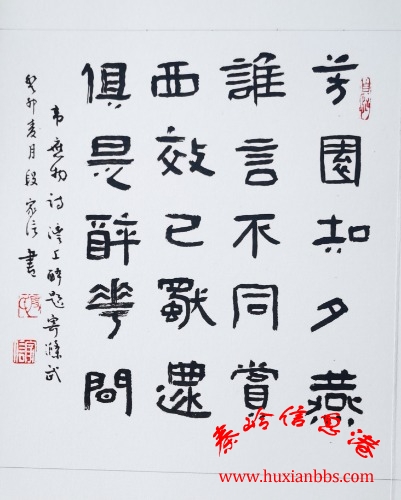 芳園知夕燕
誰言不同賞
西效已獸還
俱是醉華間
韦應物诗 澧上醉题寄滌武
癸卯夏月段家信書
秦岭信息港
www.huxianbbs.com